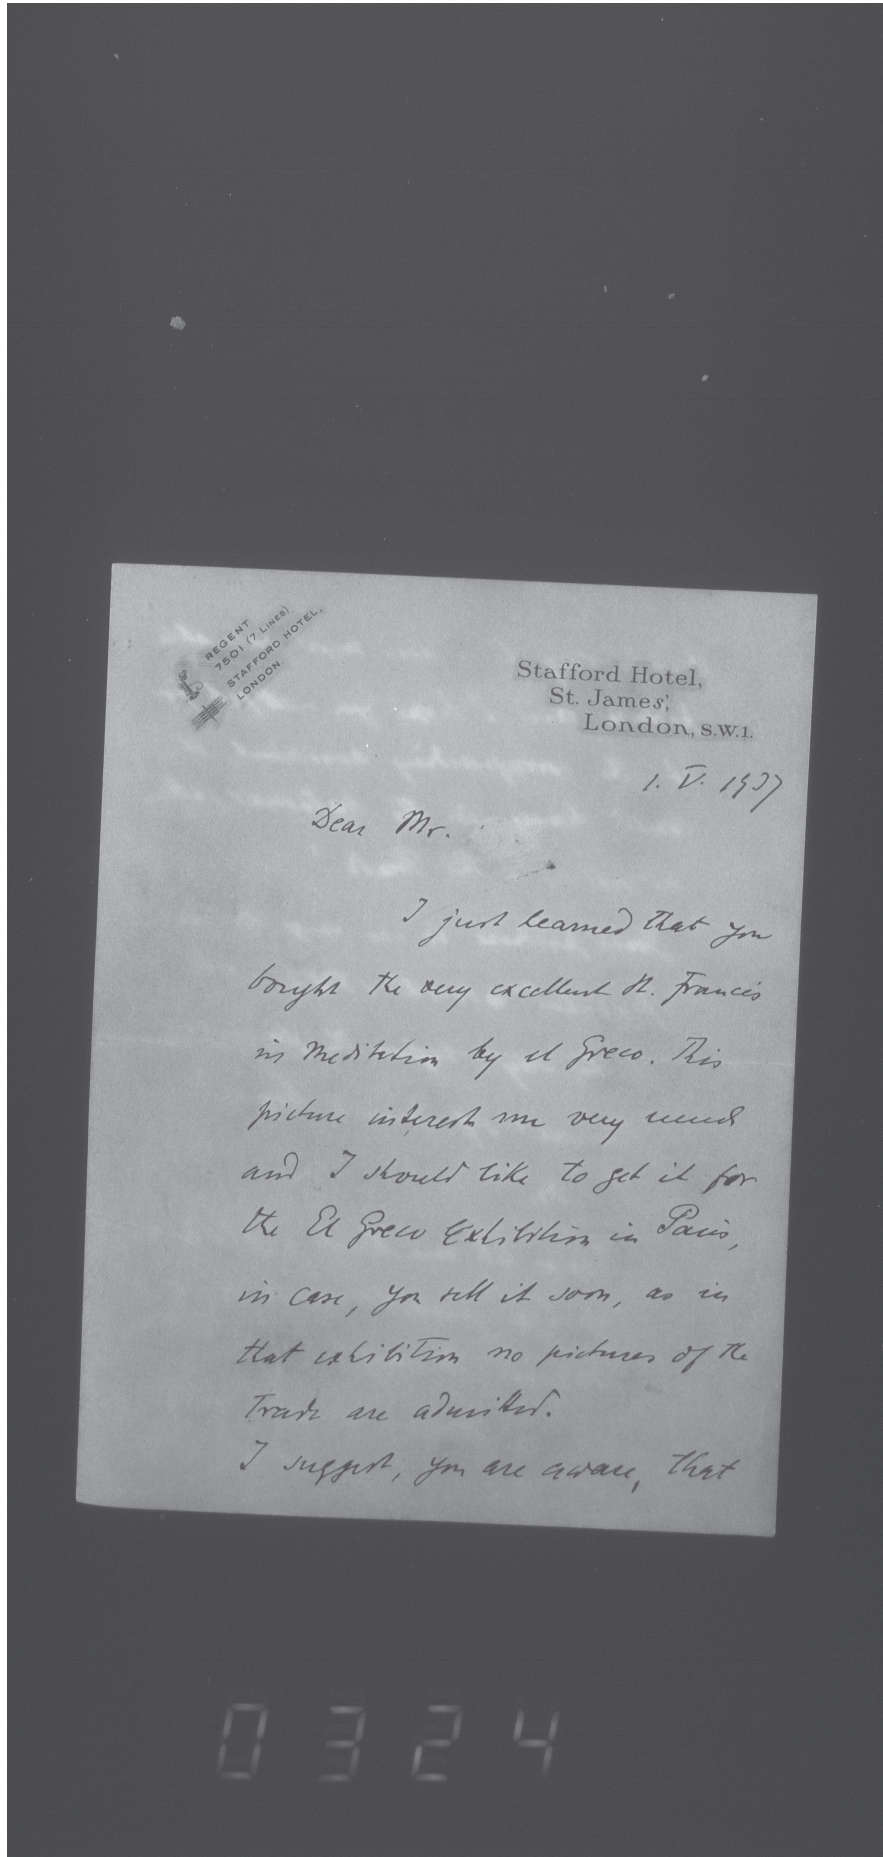 REGENT
7501 (7 LINES)
STAFFORD HOTEL,
LONDON.
Stafford Hotel,
St. James',
London, S.W.1.
1. V. 1937
Dear Mr.
I just learned that you
bought the very excellent St. Francis
in meditation by el Greco. This
picture interests me very much
and I should like to get it for
the El Greco Exhibition in Paris,
in case, you sell it soon, as in
that exhibition no pictures of the
Trade are admitted.
I suggest, you are aware, that
0324